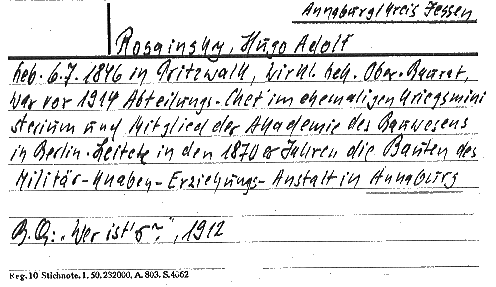 Annaburg/Kreis Jessen
Rosainsky, Hugo Adolf
Geb. 6.7. 1846 in Pritzwalk, Wirkl. Geh. Ober-Baurat,
war vor 1914 Abteilungs-Chef im ehemaligen Kriegsmini
sterium und Mitglied der Akademie des Bauwesens
in Berlin. Leitete in den 1870er Jahren die Bauten des
Militär-Knaben-Erziehungs-Anstalt in Annaburg
B.Q.: "Wer ist's?", 1912
Reg. 10 Stichnote. 1. 50. 232000. A. 803. S. 4062